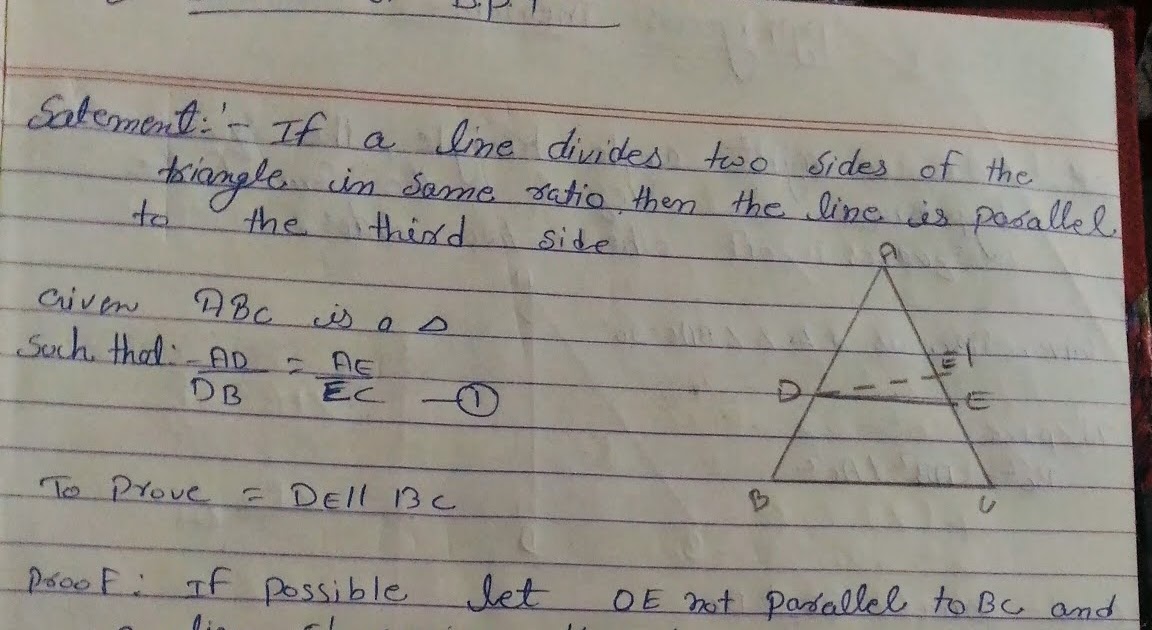 B.P.T
Satement:- If a line divides two sides of the
triangle in same ratio then the line is parallel
to the third side
A
Given ABC is a △
Such that:- AD/DB = AE/EC —①
E'
D E
To Prove = DE || BC
B C
Proof: If possible let DE not parallel to BC and